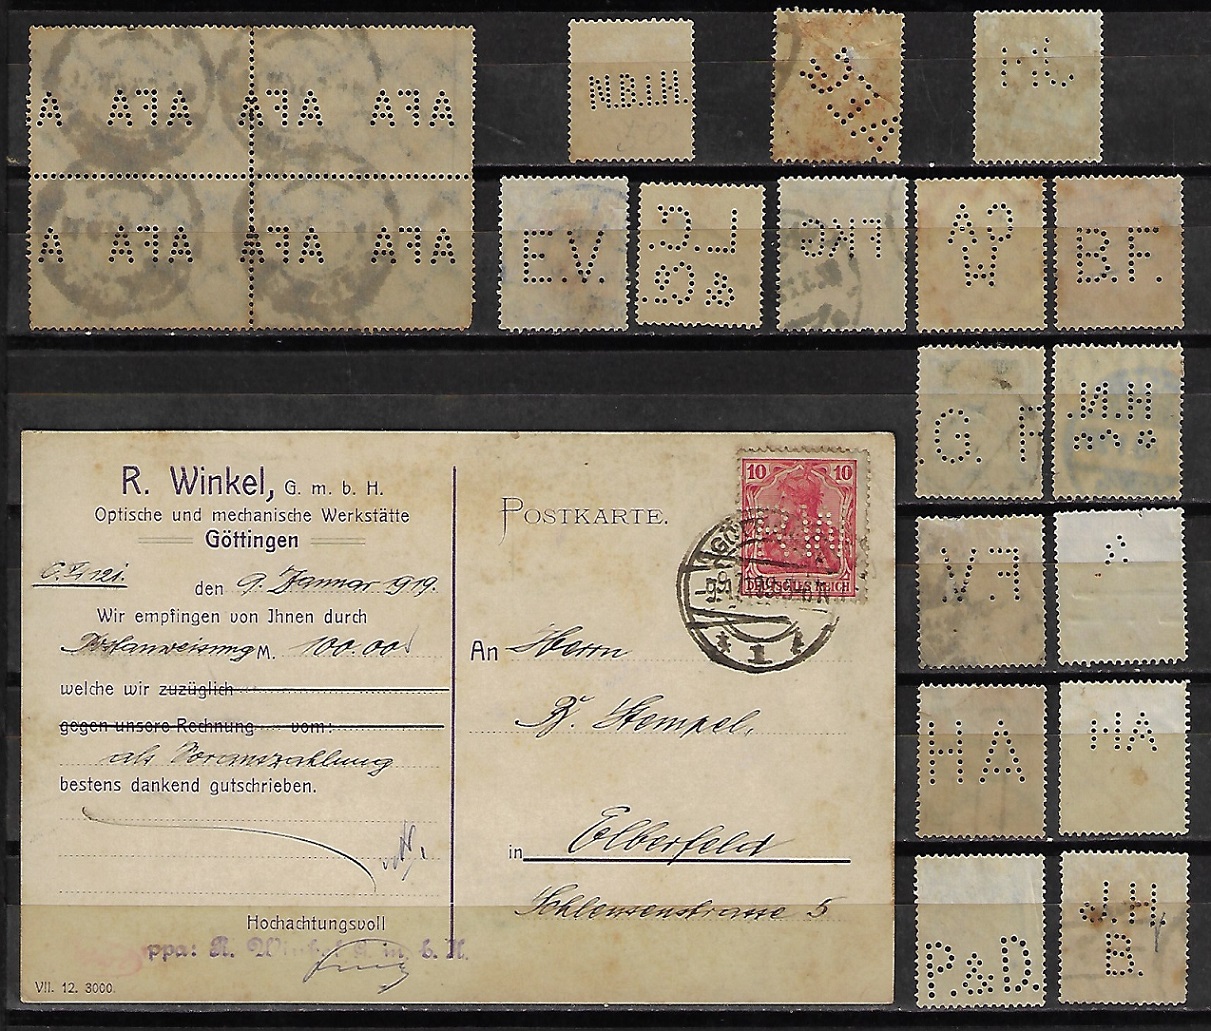 AFA AFA AFA A
AFA AFA AFA A
N.B.I.H.
E.V.
L.C.
& C.
FKG
CA
W
B.F.
G. F
N.H
& C.
V.F
HA
HA
P.&D.
J.H.
B.
R. Winkel, G. m. b. H.
Optische und mechanische Werkstätte
Göttingen
den 9. Januar 1919.
Wir empfingen von Ihnen durch
Postanweisung M. 100.00
welche wir zuzüglich
gegen unsere Rechnung vom:
als Vorauszahlung
bestens dankend gutschrieben.
Hochachtungsvoll
ppa: R. Winkel G. m. b. H.
VII. 12. 3000.
POSTKARTE.
10 10
DEUTSCHES REICH
An Herrn
R. Stempel,
in Elberfeld
Schleusenstrasse 5